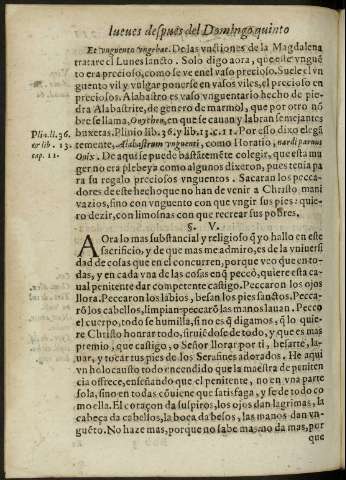 Iueues despues del Domingo quinto
Et vnguento vngebat. De las vnctiones de la Magdalena
tratare el Lunes sancto. Solo digo aora, que este vnguē
to era precioso, como se ve en el vaso precioso. Suele el vn
guento vil y vulgar ponerse en vasos viles, el precioso en
preciosos. Alabastro es vaso vnguentario hecho de pie-
dra Alabastrite, de genero de marmol, que por otro nō
bre se llama, Onychen, en que se cauan y labran semejantes
Plin. li. 36.
& lib. 13.
cap. 11.
buxetas. Plinio lib. 36. y lib. 13. c. 11. Por esso dixo elegā
temente, Alabastrum vnguenti, como Horatio, nardi parnus
Onix. De aqui se puede bastātemēte colegir, que esta mu
ger no era plebeya como algunos dixeron, pues tenia pa
ra su regalo preciosos vnguentos. Sacaran los pecca-
dores de este hecho que no han de venir a Christo mani
vazios, sino con vnguento con que vngir sus pies: quie-
ro dezir, con limosnas con que recrear sus pobres.
§. V.
AOra lo mas substancial y religioso q̄ yo hallo en este
sacrificio, y de que mas me admiro, es de la vniuersi
dad de cosas que en el concurren, porque veo que en to-
das, y en cada vna de las cosas en q̄ peccò, quiere esta ca-
ual penitente dar competente castigo. Peccaron los ojos
llora. Peccaron los labios, besan los pies sanctos. Pecca-
rō los cabellos, limpian: peccarō las manos lauan. Pecco
el cuerpo, todo se humilla, si no es q̄ digamos, q̄ lo quie-
re Christo honrar todo, siruiēdose de todo, y que es mas
premio, que castigo, o Señor llorar por ti, besarte, la-
uar, y tocar tus pies de los Serafines adorados. He aqui
vn holocausto todo encendido que la maestra de peniten
cia offrece, enseñando que el penitente, no en vna parte
sola, sino en todas cōuiene que satisfaga, y se de todo co
mo ella. El coraçon da suspiros, los ojos dan lagrimas, la
cabeça da cabellos, la boca da besos, las manos dan vn-
guēto. No haze mas, porque no sabe mas, no da mas, por
que